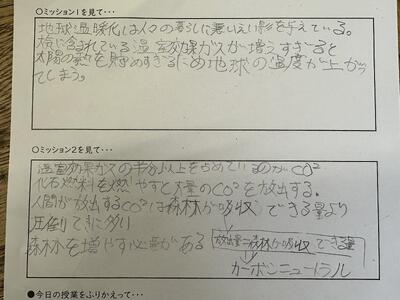 ○ミッション1を見て・・・
地球温暖化は人々の暮らしに悪いえい影を与えている。
大気に含まれている温室効果ガスが増えすぎると
太陽の熱を貯めすぎるため地球の温度が上がっ
てしまう。
○ミッション2を見て・・・
温室効果ガスの半分以上をしめているのがCO²
化石燃料を燃やすと大量のCO²を放出する。
人間が放出するCO²は森林が吸収できる量より
圧倒てきに多い
森林を増やす必要がある 放出量=森林が吸収できる量
カーボンニュートラル
●今日の授業をふりかえって・・・